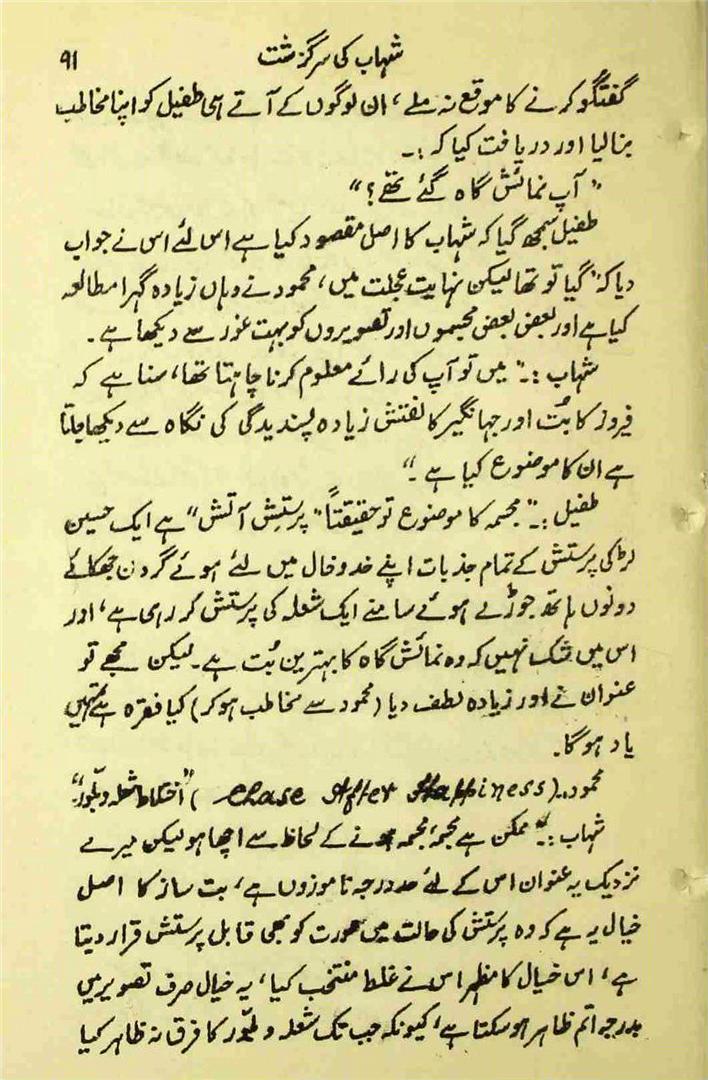 شہاب کی سرگزشت ۹۱
گفتگو کرنے کا موقع نہ ملے، ان لوگوں کے آتے ہی طفیل کو اپنا مخاطب
بنا لیا اور دریافت کیا کہ :۔
"آپ نمائش گاہ گئے تھے؟"
طفیل سمجھ گیا کہ شہاب کا اصل مقصود کیا ہے اس لئے اس نے جواب
دیا کہ "گیا تو تھا لیکن نہایت عجلت میں، محمود نے وہاں زیادہ گہرا مطالعہ
کیا ہے اور بعض بعض مجسموں اور تصویروں کو بہت غور سے دیکھا ہے۔
شہاب :۔ "میں تو آپ کی رائے معلوم کرنا چاہتا تھا، سنا ہے کہ
فیروز کا بُت اور جہانگیر کا نقش زیادہ پسندیدگی کی نگاہ سے دیکھا جاتا
ہے ان کا موضوع کیا ہے۔"
طفیل :۔ "مجسمہ کا موضوع تو حقیقتاً "پرستِش آتش" ہے ایک حسین
لڑکی پرستش کے تمام جذبات اپنے خد و خال میں لئے ہوئے گردن جھکائے
دونوں ہاتھ جوڑے ہوئے سامنے ایک شعلہ کی پرستش کر رہی ہے، اور
اس میں شک نہیں کہ وہ نمائش گاہ کا بہترین بُت ہے۔ لیکن مجھے تو
عنوان نے اور زیادہ لطف دیا (محمود سے مخاطب ہو کر) کیا فقرہ ہے تمہیں
یاد ہوگا۔
محمود۔ (Chase After Happiness) "اختلاط شعلہ و بلّور"
شہاب :۔ "ممکن ہے مجسمہ، مجسمہ ہونے کے لحاظ سے اچھا ہو لیکن میرے
نزدیک یہ عنوان اس کے لئے حد درجہ ناموزوں ہے، بت ساز کا اصل
خیال یہ ہے کہ وہ پرستش کی حالت میں عورت کو بھی قابل پرستش قرار دیتا
ہے، اس خیال کا مظہر اس نے غلط منتخب کیا، یہ خیال صرف تصویر میں
بدرجہ اتم ظاہر ہو سکتا ہے، کیونکہ جب تک شعلہ و بلّور کا فرق نہ ظاہر کیا